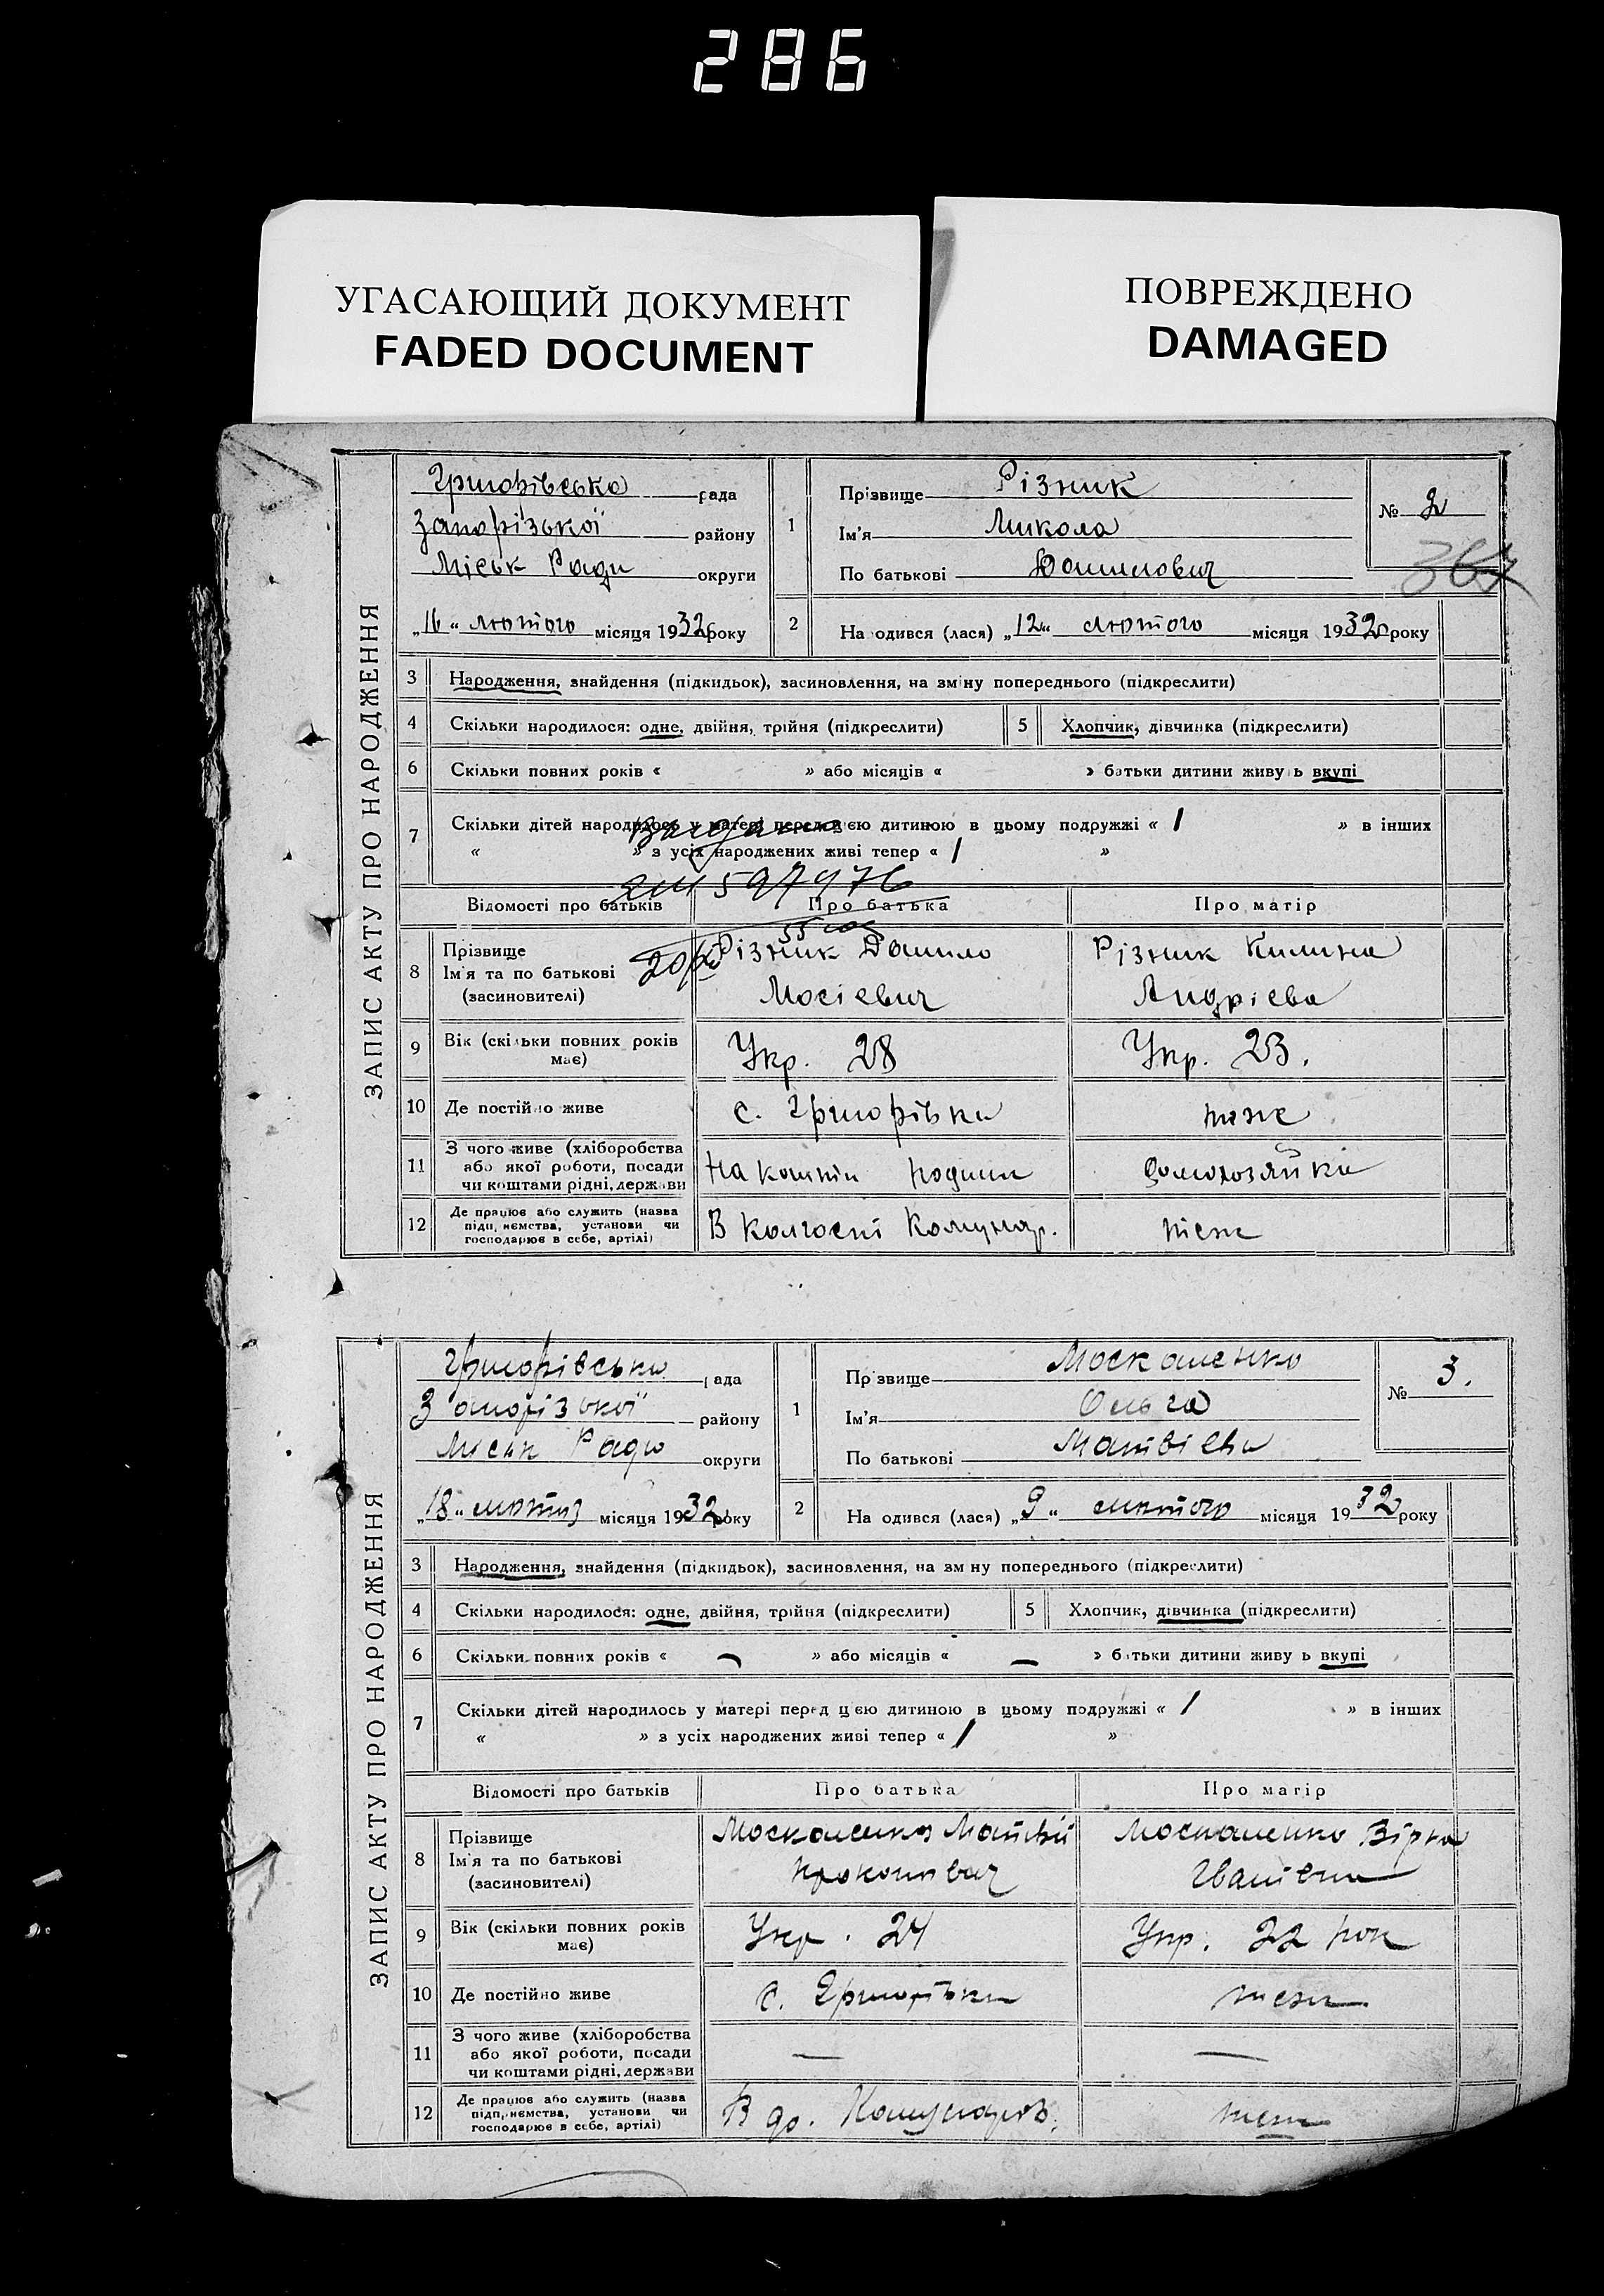 286
УГАСАЮЩИЙ ДОКУМЕНТ
FADED DOCUMENT
ПОВРЕЖДЕНО
DAMAGED
ЗАПИС АКТУ ПРО НАРОДЖЕННЯ
Григорівська рада
Запорізької району
Міськ Ради округи
„16“ лютого місяця 1932 року
1 Прізвище Різник
Ім'я Микола
По батькові Данилович
№ 2
367
2 На одився (лася) „12“ лютого місяця 1932 року
3 Народження, знайдення (підкидьок), засиновлення, на зміну попереднього (підкреслити)
4 Скільки народилося: одне, двійня, трійня (підкреслити) 5 Хлопчик, дівчинка (підкреслити)
6 Скільки повних років « » або місяців « » батьки дитини живу ь вкупі
7 Скільки дітей народилось у матері перед цією дитиною в цьому подружжі « 1 » в інших
« » з усіх народжених живі тепер « 1 »
597976
Відомості про батьків Про батька Про матір
8 Прізвище
Ім'я та по батькові
(засиновителі)
Різник Данило
Мосієвич
Різник Килина
Андрієва
9 Вік (скільки повних років має) Укр. 28 Укр. 23.
10 Де постійно живе с. Григорівка теже
11 З чого живе (хліборобства
або якої роботи, посади
чи коштами рідні, держави
На кошти родини домохозяйка
12 Де працює або служить (назва
підприємства, установи чи
господарює в себе, артілі)
В колгоспі Комунар. теже
ЗАПИС АКТУ ПРО НАРОДЖЕННЯ
Григорівська рада
Запорізької району
Міськ Ради округи
„18“ лютого місяця 1932 року
1 Прізвище Москаленко
Ім'я Ольга
По батькові Матвієва
№ 3.
2 На одився (лася) „9“ лютого місяця 1932 року
3 Народження, знайдення (підкидьок), засиновлення, на зм ну попереднього (підкреслити)
4 Скільки народилося: одне, двійня, трійня (підкреслити) 5 Хлопчик, дівчинка (підкреслити)
6 Скільки повних років « — » або місяців « — » батьки дитини живу ь вкупі
7 Скільки дітей народилось у матері перед цією дитиною в цьому подружжі « 1 » в інших
« » з усіх народжених живі тепер « 1 »
Відомості про батьків Про батька Про матір
8 Прізвище
Ім'я та по батькові
(засиновителі)
Москаленко Матвій
Прокопович
Москаленко Вірка
Іванівна
9 Вік (скільки повних років має) Укр. 24 Укр. 22 рок
10 Де постійно живе с. Григорівка теже
11 З чого живе (хліборобства
або якої роботи, посади
чи коштами рідні, держави
— —
12 Де працює або служить (назва
підприємства, установи чи
господарює в себе, артілі)
В до. Комунарів. теже